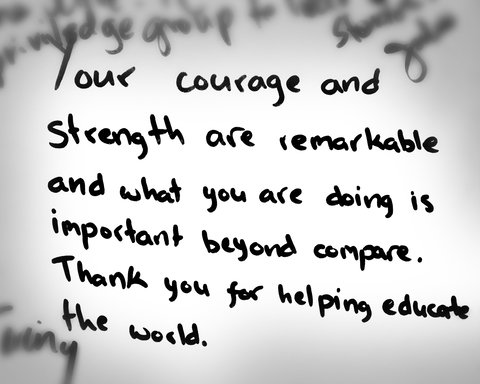 privilege group to
Your courage and
strength are remarkable
and what you are doing is
important beyond compare.
Thank you for helping educate
the world.